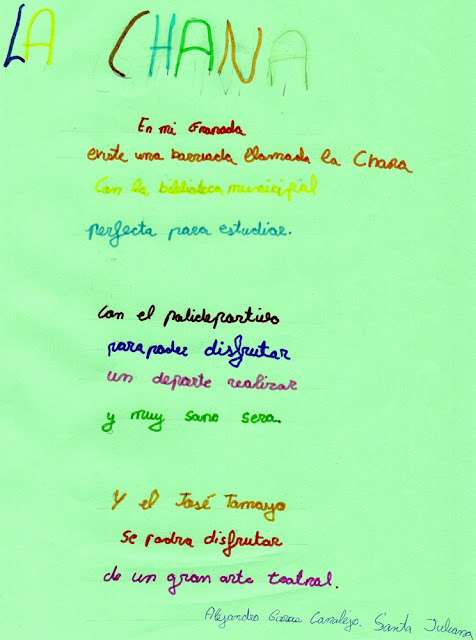 LA CHANA
En mi Granada
existe una barriada llamada la Chana
Con la biblioteca municipal
perfecta para estudiar.
Con el polideportivo
para poder disfrutar
un deporte realizar
y muy sano sera.
Y el José Tamayo
Se podra disfrutar
de un gran arte teatral.
Alejandro Canalejo. Santa Juliana